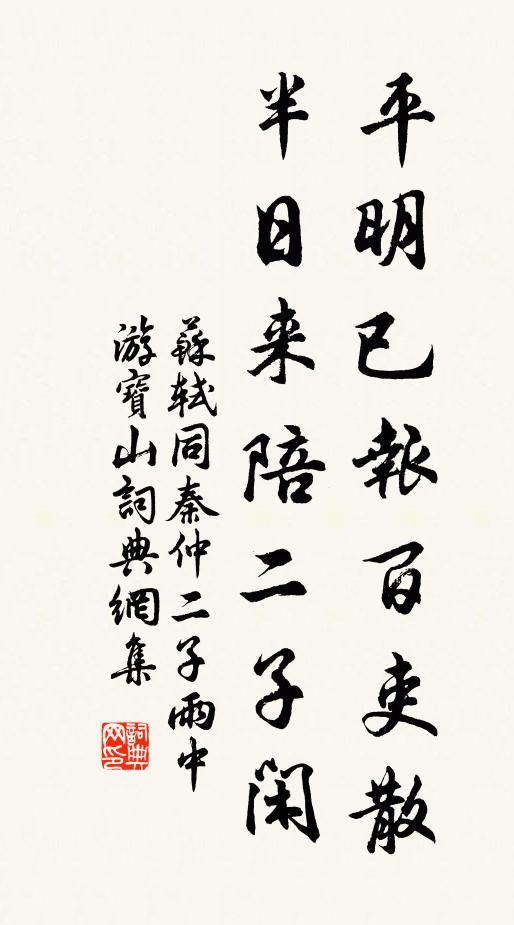 平明已報百吏散
半日来陪二子閑
蘇軾同秦仲二子雨中
游寶山詞典網集
詞典
网印